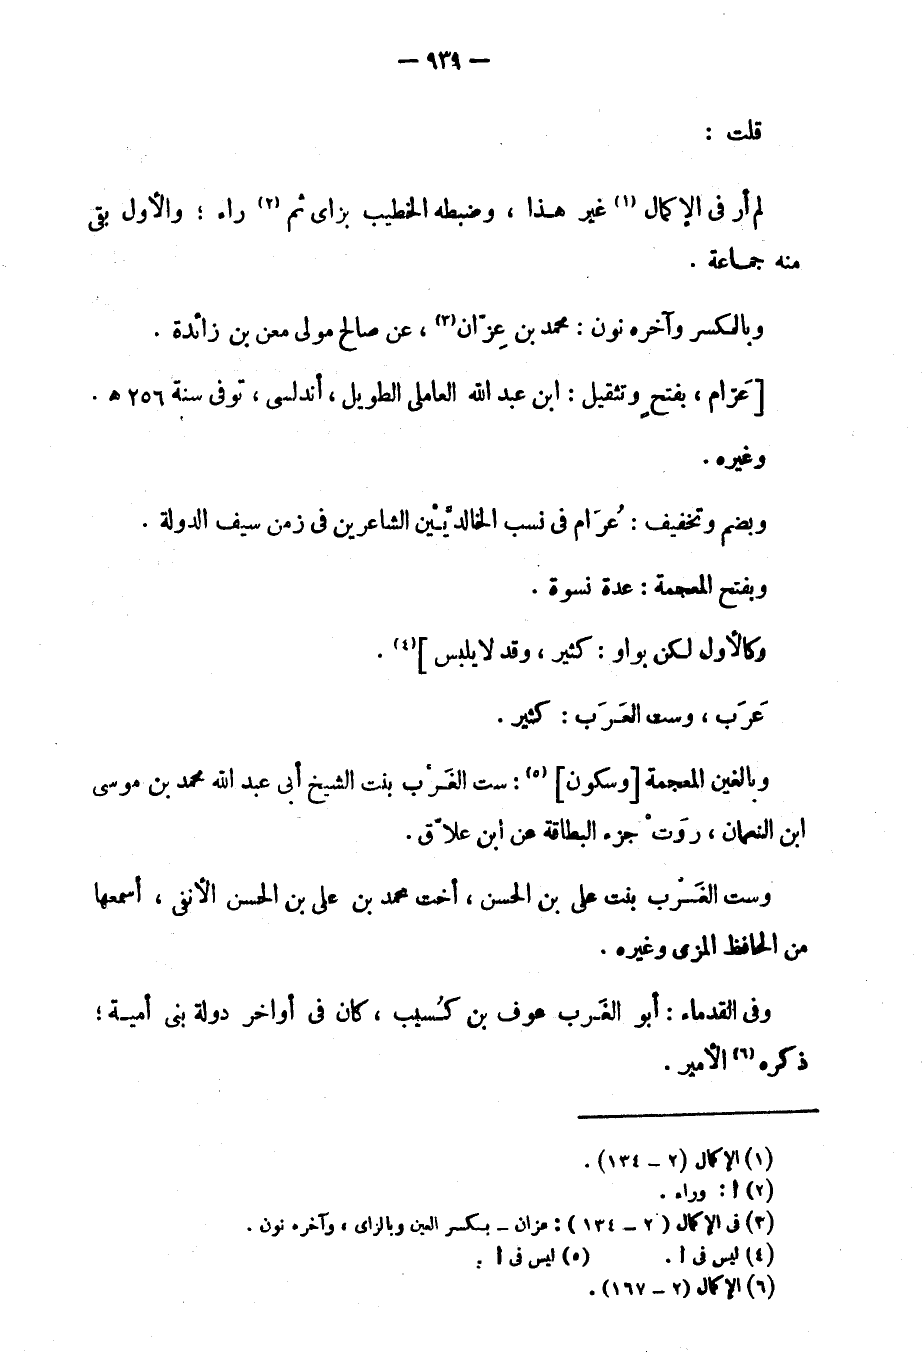 — ٩٣٩ —
قلت :
لم أر فى الإكمال (١) غير هـذا ، وضبطه الخطيب بزاى ثم (٢) راء ؛ والأول بقى
منه جمـاعة .
وبالكسر وآخره نون : محمد بن عِزّان(٣) ، عن صالح مولى معن بن زائدة .
[عَرّام ، بفتح وتثقيل : ابن عبد الله العاملى الطويل ، أندلسى ، توفى سنة ٢٥٦ ه .
وغيره .
وبضم وتخفيف : عُرَام فى نسب الخالديَّيْن الشاعرين فى زمن سيف الدولة .
وبفتح المعجمة : عدة نسوة .
وكالأول لـكن بواو : كثير ، وقد لايلبس ](٤) .
عَرَب ، وست العَـرَب : كثير .
وبالغين المعجمة [وسكون] (٥) : ست الغَـرْب بنت الشيخ أبى عبد الله محمد بن موسى
ابن النعمان ، روَتْ جزء البطاقة عن ابن علاّق .
وست الغَـرْب بنت على بن الحسن ، أخت محمد بن على بن الحسن الأنفى ، أسمعها
من الحافظ المزى وغيره .
وفى القدماء : أبو الغَـرب عوف بن كُـسيب ، كان فى أواخر دولة بنى أميـة ؛
ذكره (٦) الأمير .
(١) الإكمال (٢ – ١٣٤) .
(٢) أ : وراء .
(٣) فى الإكمال (٢ – ١٣٤) : عزان – بكسر العين وبالزاى ، وآخره نون .
(٤) ليس فى أ . (٥) ليس فى أ :
(٦) الإكمال (٢ – ١٦٧) .